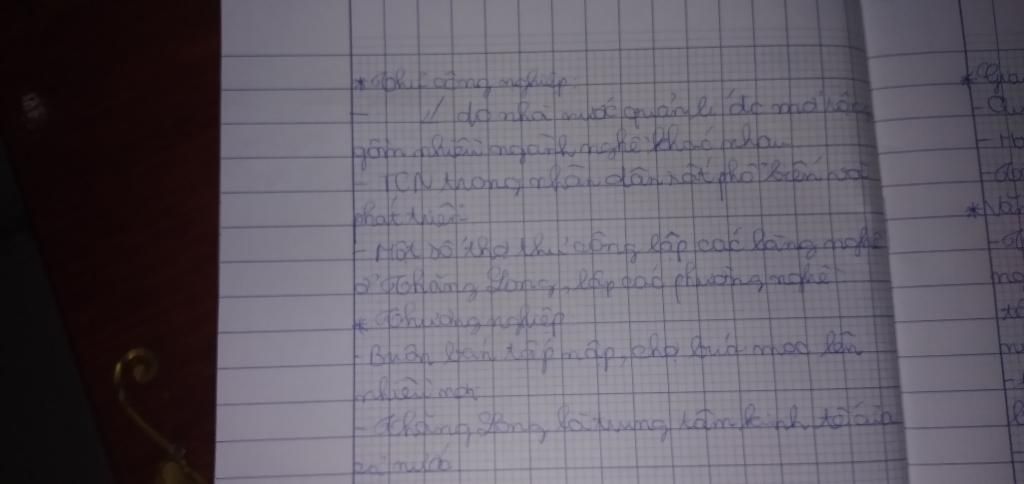 * Thủ công nghiệp:
- // do nhà nước quản lí đc mở rộng
gồm nhiều ngành nghề khác nhau
- TCN trong nhân dân rất phổ biến và
phát triển
- Một số thợ thủ công lập các làng nghề
ở Thăng Long, lập các phường nghề
* Thương nghiệp
- Buôn bán tấp nập, chợ búa mọc lên
nhiều nơi
- Thăng Long là trung tâm kinh tế của
cả nước